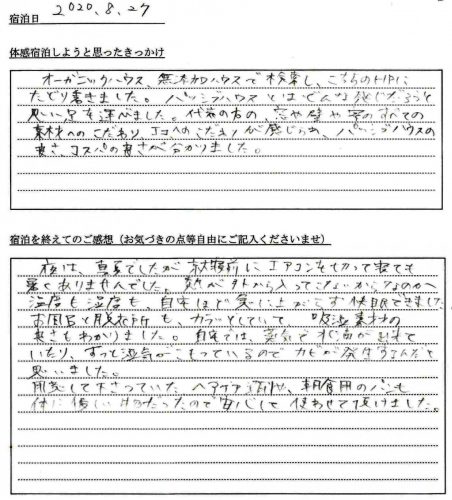 宿泊日 2020.8.27
体感宿泊しようと思ったきっかけ
オーガニックハウス、無添加ハウスで検索し、こちらのHPに
たどり着きました。パッシブハウスとはどんな家だろうと
思い足を運べました。代表の方の、窓や壁や家のすべての
素材へのこだわり、エコへのこだわりが感じられ、パッシブハウスの
良さ、コスパの良さが分かりました。
宿泊を終えてのご感想（お気づきの点等自由にご記入くださいませ）
夜は、真夏でしたが就寝前にエアコンを切って寝ても
暑くありませんでした。熱が外から入ってこないからなのか
温度も湿度も、自宅ほど気に上がらず快眠できました。
お風呂や脱衣所も、カラッとしていて、吸湿素材の
良さもわかりました。自宅では、蒸気で水滴が出来て
いたり、ずっと湿気がこもっているのでカビが発生するんだと
思いました。
用意して下さっていた、ヘアケア、朝食用のパンも
体に優しいものだったので安心して使わせて頂けました。